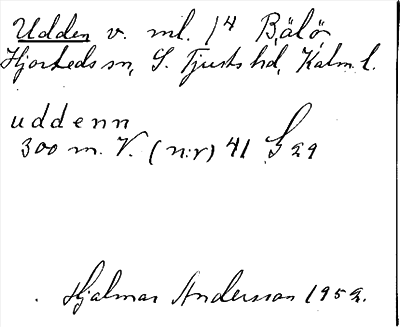 Udden v. ml. 14 Bälö
Hjorteds sn, S. Tjusts hd, Kalm. l.
uddenn
300 m. V. (n:r) 41 S 29
Hjalmar Andersson 1952.